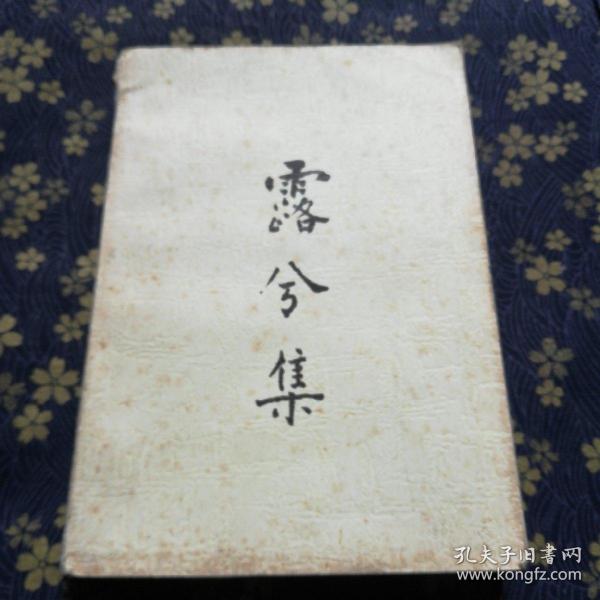 露兮集
孔夫子旧书网
www.kongfz.com